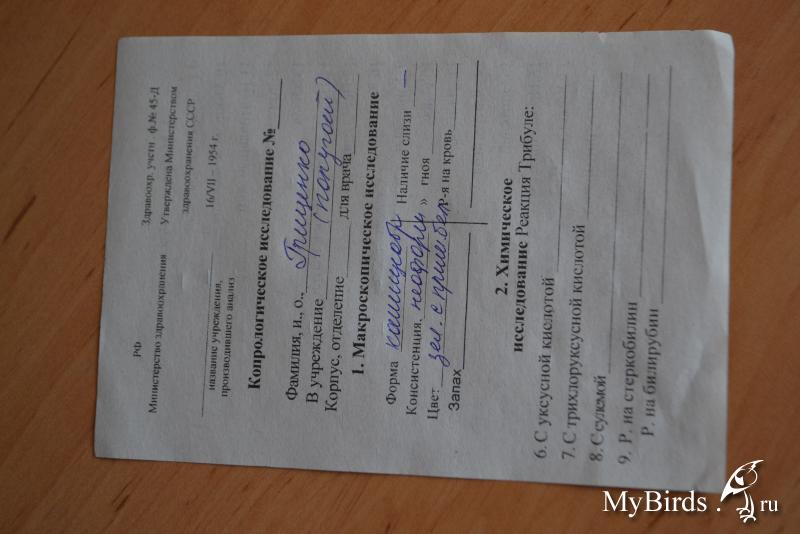 РФ
Министерство здравоохранения
Здравоохр. учетн ф.№ 45-Д
Утверждена Министерством
здравоохранения СССР
16/VII – 1954 г.
название учреждения,
производившего анализ
Копрологическое исследование №
Фамилия, и., о., Грищенко
В учреждение (попугай)
Корпус, отделение для врача
1. Макроскопическое исследование
Форма кашицеобр Наличие слизи —
Консистенция, неоформ » гноя
Цвет зел. с прим. бел р-я на кровь
Запах
2. Химическое
исследование Реакция Трибуле:
6. С уксусной кислотой
7. С трихлоруксусной кислотой
8. С сулемой
9. Р. на стеркобилин
Р. на билирубин
MyBirds.ru